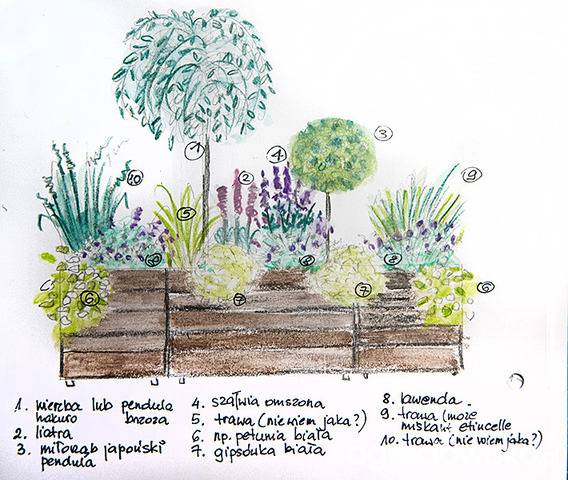 3
4
1
2
9
10
5
8
6
7
7
6
1. wierzba lub pendula
hakuro brzoza
2. liatra
3. miłorząb japoński
pendula
4. szałwia omszona
5. trawa (nie wiem jaka?)
6. np. petunia biała
7. gipsówka biała
8. lawenda
9. trawa (może
miskant etincelle
10. trawa (nie wiem jaka?)